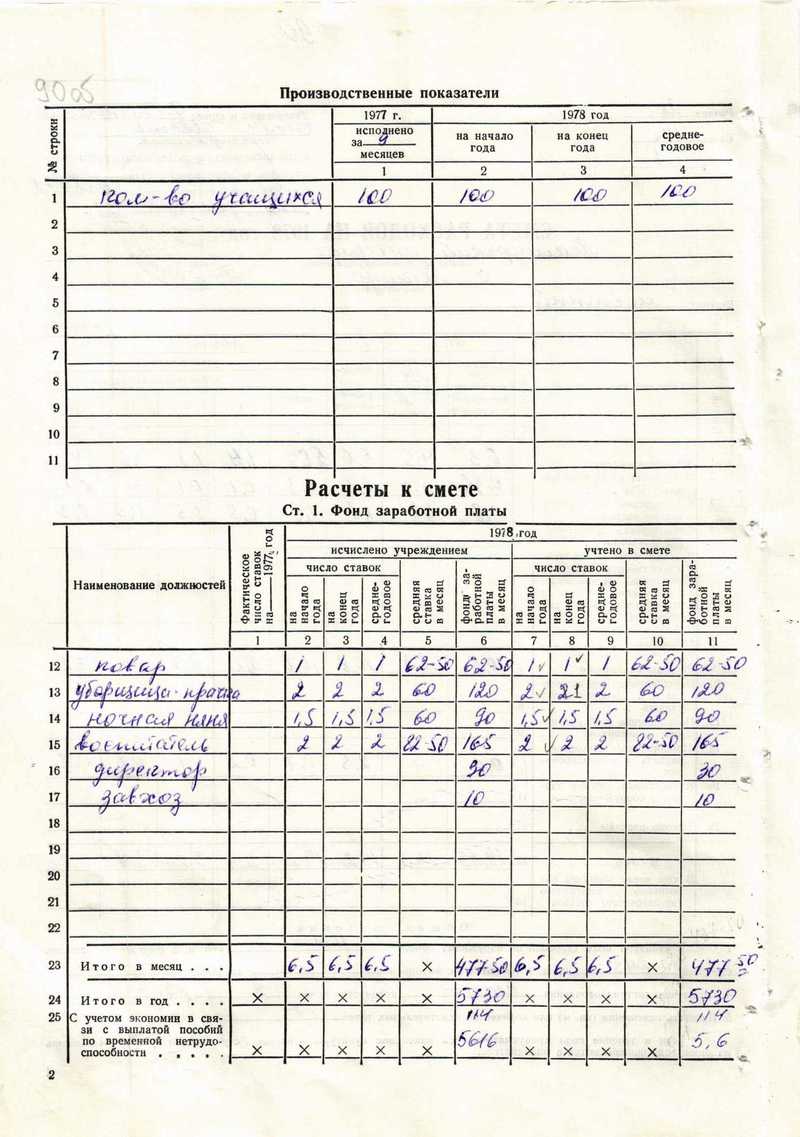 90 об
Производственные показатели
№ строки
1977 г.
1978 год
исполнено
за 9
месяцев
на начало
года
на конец
года
средне-
годовое
1 2 3 4
1 кол-во учащихся 100 100 100 100
2
3
4
5
6
7
8
9
10
11
Расчеты к смете
Ст. 1. Фонд заработной платы
Наименование должностей
Фактическое
число ставок
на 1977 год
1978 год
исчислено учреждением
учтено в смете
число ставок
на
начало
года
на
конец
года
средне-
годовое
средняя
ставка
в месяц
фонд за-
работной
платы
в месяц
число ставок
на
начало
года
на
конец
года
средне-
годовое
средняя
ставка
в месяц
фонд зара-
ботной
платы
в месяц
1 2 3 4 5 6 7 8 9 10 11
12 повар 1 1 1 62-50 62-50 1 1 1 62-50 62-50
13 уборщица-прачка 2 2 2 60 120 2 2 2 60 120
14 ночная няня 1,5 1,5 1,5 60 90 1,5 1,5 1,5 60 90
15 воспитатель 2 2 2 82-50 165 2 2 2 82-50 165
16 директор 30 30
17 завхоз 10 10
18
19
20
21
22
23 Итого в месяц . . . 6,5 6,5 6,5 × 477 50 6,5 6,5 6,5 × 477 50
24 Итого в год . . . . × × × × × 5730 × × × × 5730
25 С учетом экономии в свя-
зи с выплатой пособий
по временной нетрудо-
способности . . . . . × × × × × 114 5616 × × × × 114 5,6
2